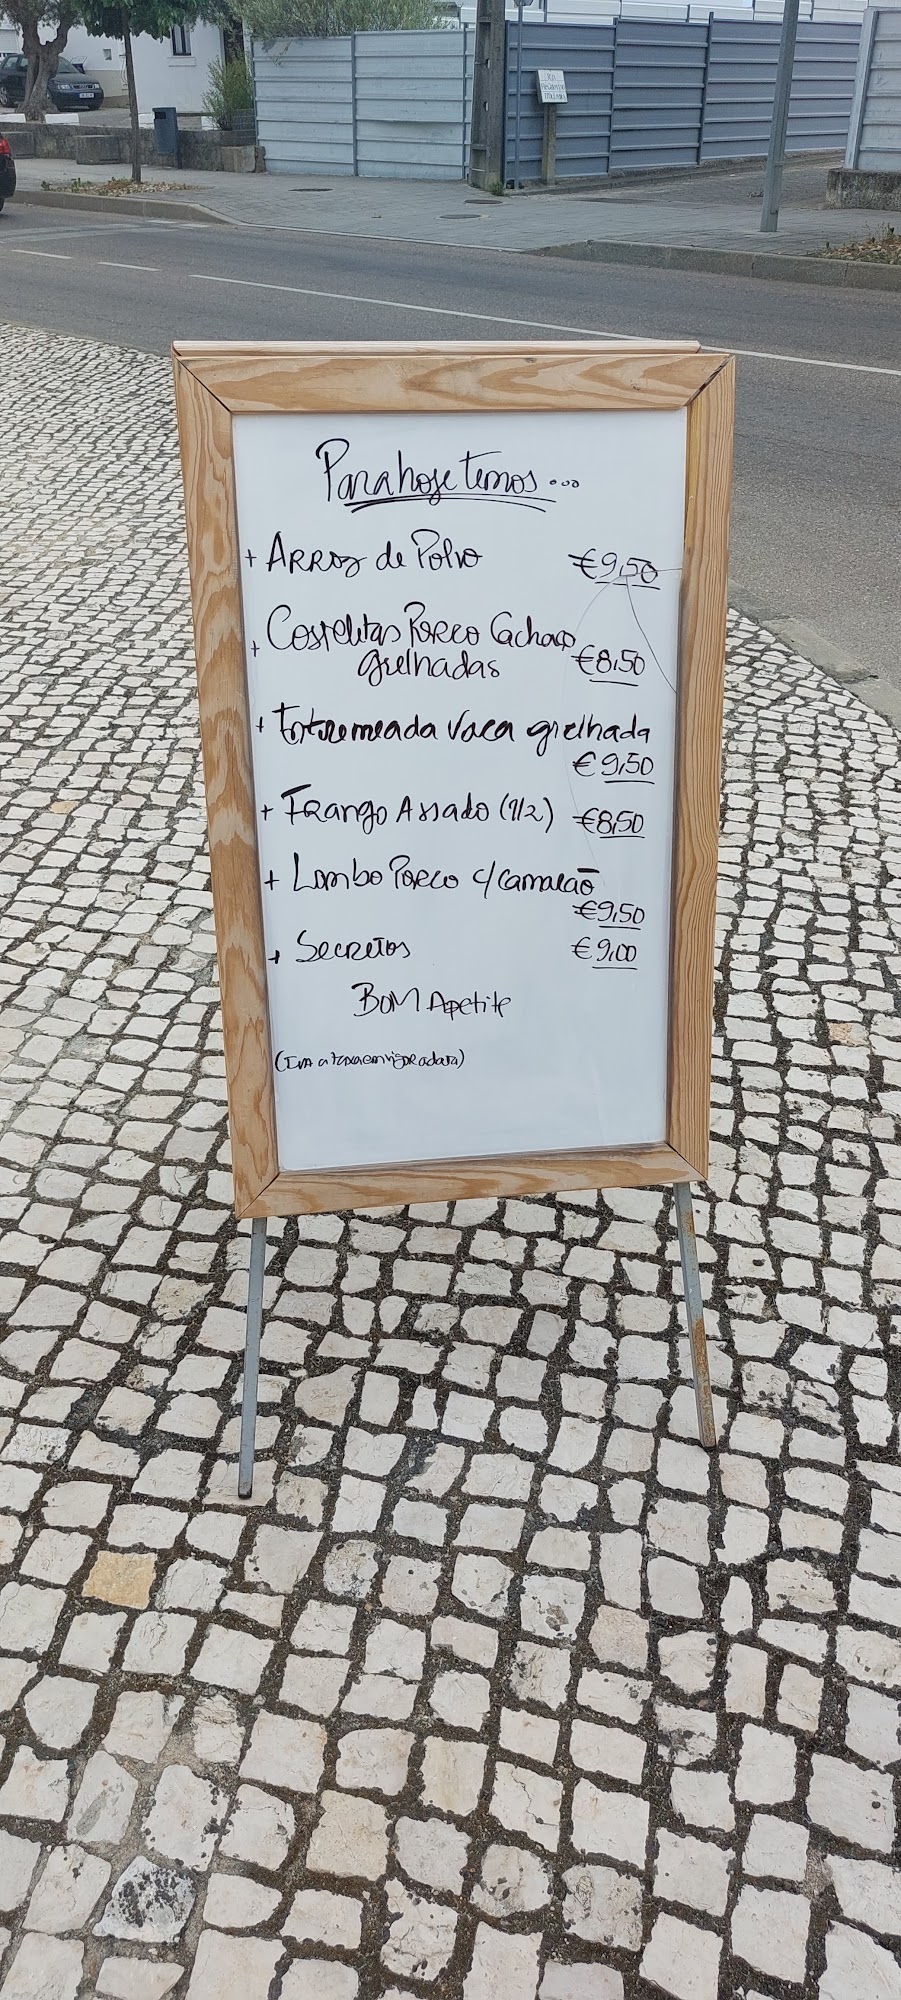 Para hoje temos...
+ Arroz de Polvo €9,50
+ Costelitas Porco Cachaço
grelhadas €8,50
+ Entremeada Vaca grelhada
€9,50
+ Frango Assado (1/2) €8,50
+ Lombo Porco c/camarão
€9,50
+ Secretos €9,00
Bom Apetite
(IVA a taxa em vigor